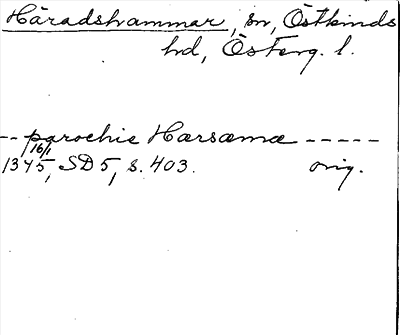 Häradshammar, sn, Östkinds
hd, Österg. l.
-- parochie Harsama -----
16/1
1345, SD 5, s. 403. orig.